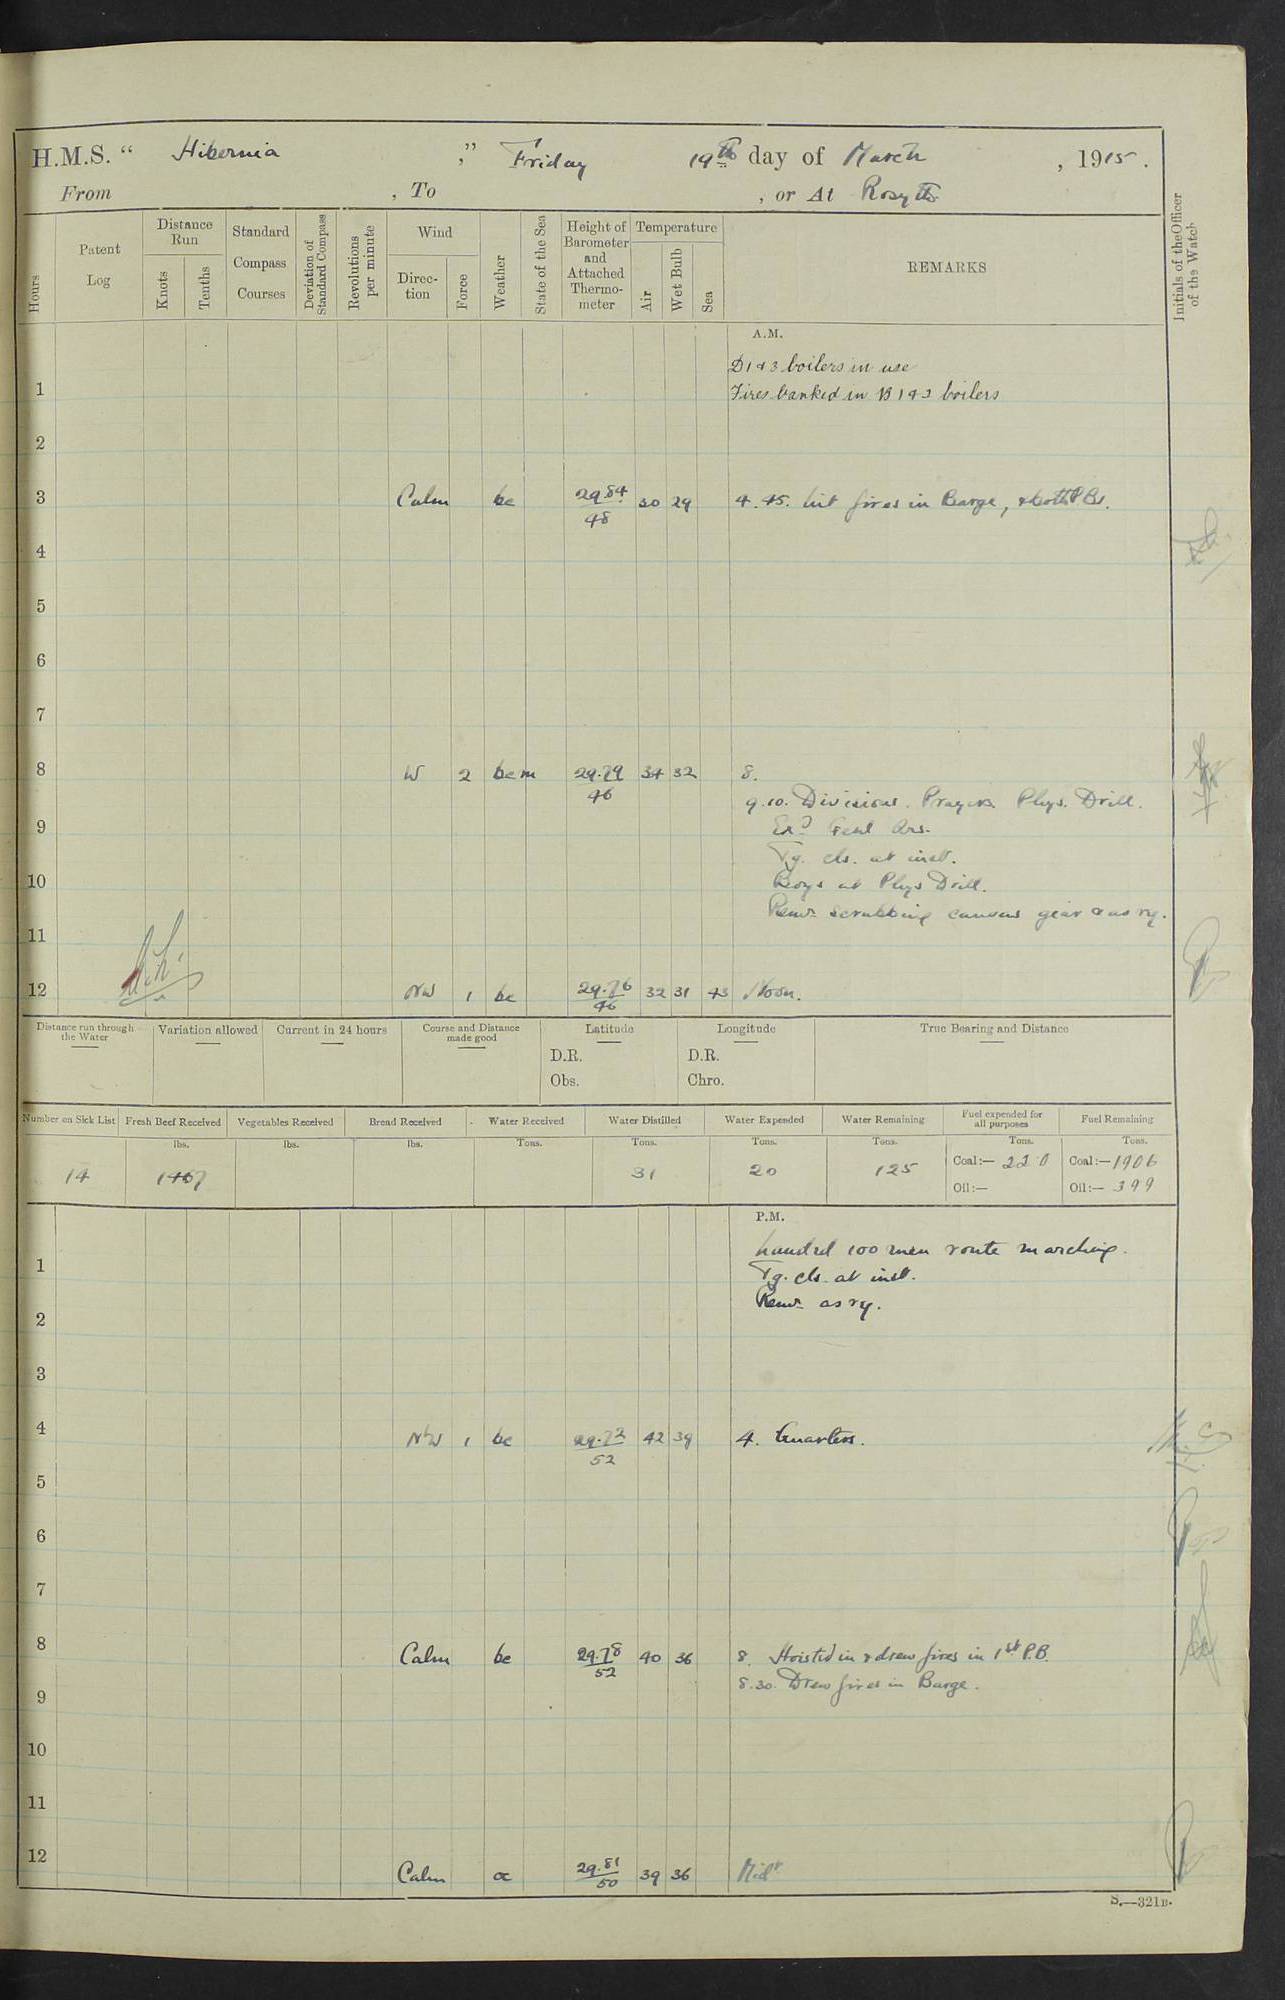 H.M.S. " Hibernia ," Friday 19th day of March , 1915.
From , To , or At Rosyth
Hours
Patent Log
Distance Run
Knots
Tenths
Standard Compass Courses
Deviation of Standard Compass
Revolutions per minute
Wind
Direction
Force
Weather
State of the Sea
Height of Barometer and Attached Thermometer
Temperature
Air
Wet Bulb
Sea
REMARKS
Initials of the Officer of the Watch
A.M.
D 1 & 3 boilers in use
1 Fires banked in B 1 & 3 boilers
2
3 Calm bc 29.84 / 48 30 29 4.45. lit fires in Barge, & both P.Bs.
4
5
6
7
8 W 2 bcm 29.79 / 46 34 32 8.
9.10. Divisions. Prayers. Phys. Drill.
9 Exd Genl Qrs.
Tg. cls. at inst.
10 Boys at Phys Drill.
Remr scrubbing canvas gear & as rq.
11
12 NW 1 bc 29.76 / 46 32 31 43 Noon.
Distance run through the Water
Variation allowed
Current in 24 hours
Course and Distance made good
Latitude
D.R.
Obs.
Longitude
D.R.
Chro.
True Bearing and Distance
Number on Sick List Fresh Beef Received Vegetables Received Bread Received Water Received Water Distilled Water Expended Water Remaining Fuel expended for all purposes Fuel Remaining
lbs. lbs. lbs. Tons. Tons. Tons. Tons. Tons. Tons.
14 1467 31 20 125 Coal:— 22.0 Coal:— 1906
Oil:— Oil:— 399
P.M.
landed 100 men route marching.
1 Tg. cls. at inst.
2 Remr as rq.
3
4 NW 1 bc 29.72 / 52 42 39 4. Quarters.
5
6
7
8 Calm bc 29.78 / 52 40 36 8. Hoisted in & drew fires in 1st P.B.
9 8.30. Drew fires in Barge.
10
11
12 Calm 29.81 / 50 39 36 Midt
S.—321B.